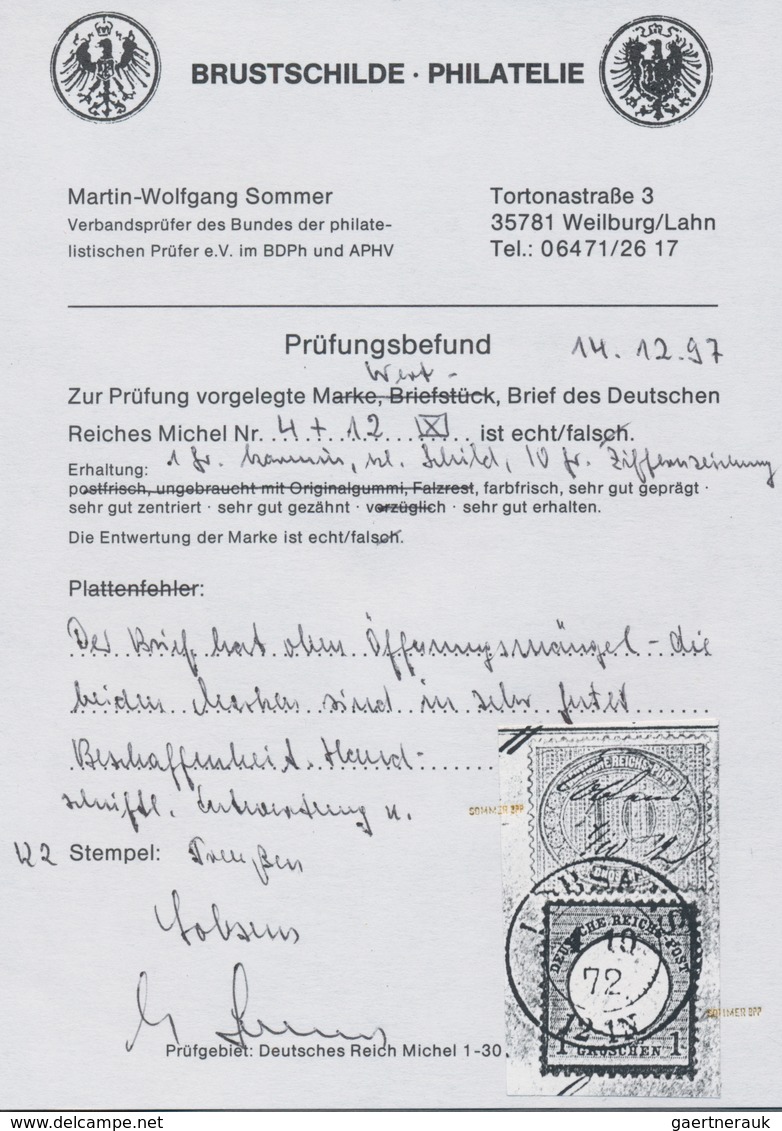 BRUSTSCHILDE · PHILATELIE
Martin-Wolfgang Sommer
Verbandsprüfer des Bundes der philate-
listischen Prüfer e.V. im BDPh und APHV
Tortonastraße 3
35781 Weilburg/Lahn
Tel.: 06471/26 17
Prüfungsbefund 14.12.97
Wert-
Zur Prüfung vorgelegte Marke, Briefstück, Brief des Deutschen
Reiches Michel Nr. 4 + 12 ist echt/falsch.
Erhaltung: 1 Gr. karmin, kl. Schild, 10 Gr. Ziffernzeichnung
postfrisch, ungebraucht mit Originalgummi, Falzrest, farbfrisch, sehr gut geprägt ·
sehr gut zentriert · sehr gut gezähnt · vorzüglich · sehr gut erhalten.
Die Entwertung der Marke ist echt/falsch.
Plattenfehler:
Der Brief hat oben Öffnungsmängel - die
beiden Marken sind in sehr guter
Beschaffenheit. Hand-
schriftl. Entwertung u.
K2 Stempel: Preußen
Lobsens
Prüfgebiet: Deutsches Reich Michel 1-30.
SOMMER BPP
REICHS-POST
10
LOBSENS
10
72
12-1N
DEUTSCHE REICHS-POST
1 GROSCHEN 1
SOMMER BPP
gaertnerauk